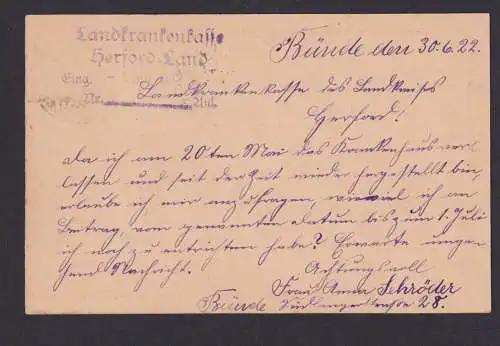 Landkrankenkasse
Herford-Land
Bünde den 30.6.22.
Eing.
Landkrankenkasse des Landkreises
Nr. Anl.
Herford.
Da ich am 20ten Mai das Krankenhaus ver
lassen und seit der Zeit wieder hergestellt bin,
erlaube ich mir anzufragen, wieviel ich an
Beitrag, vom genannten datum bis zum 1. Juli
ich noch zu entrichten habe? Erwarte umge
hend Nachricht.
Achtungsvoll
Frau Anna Schröder
Bünde 28.